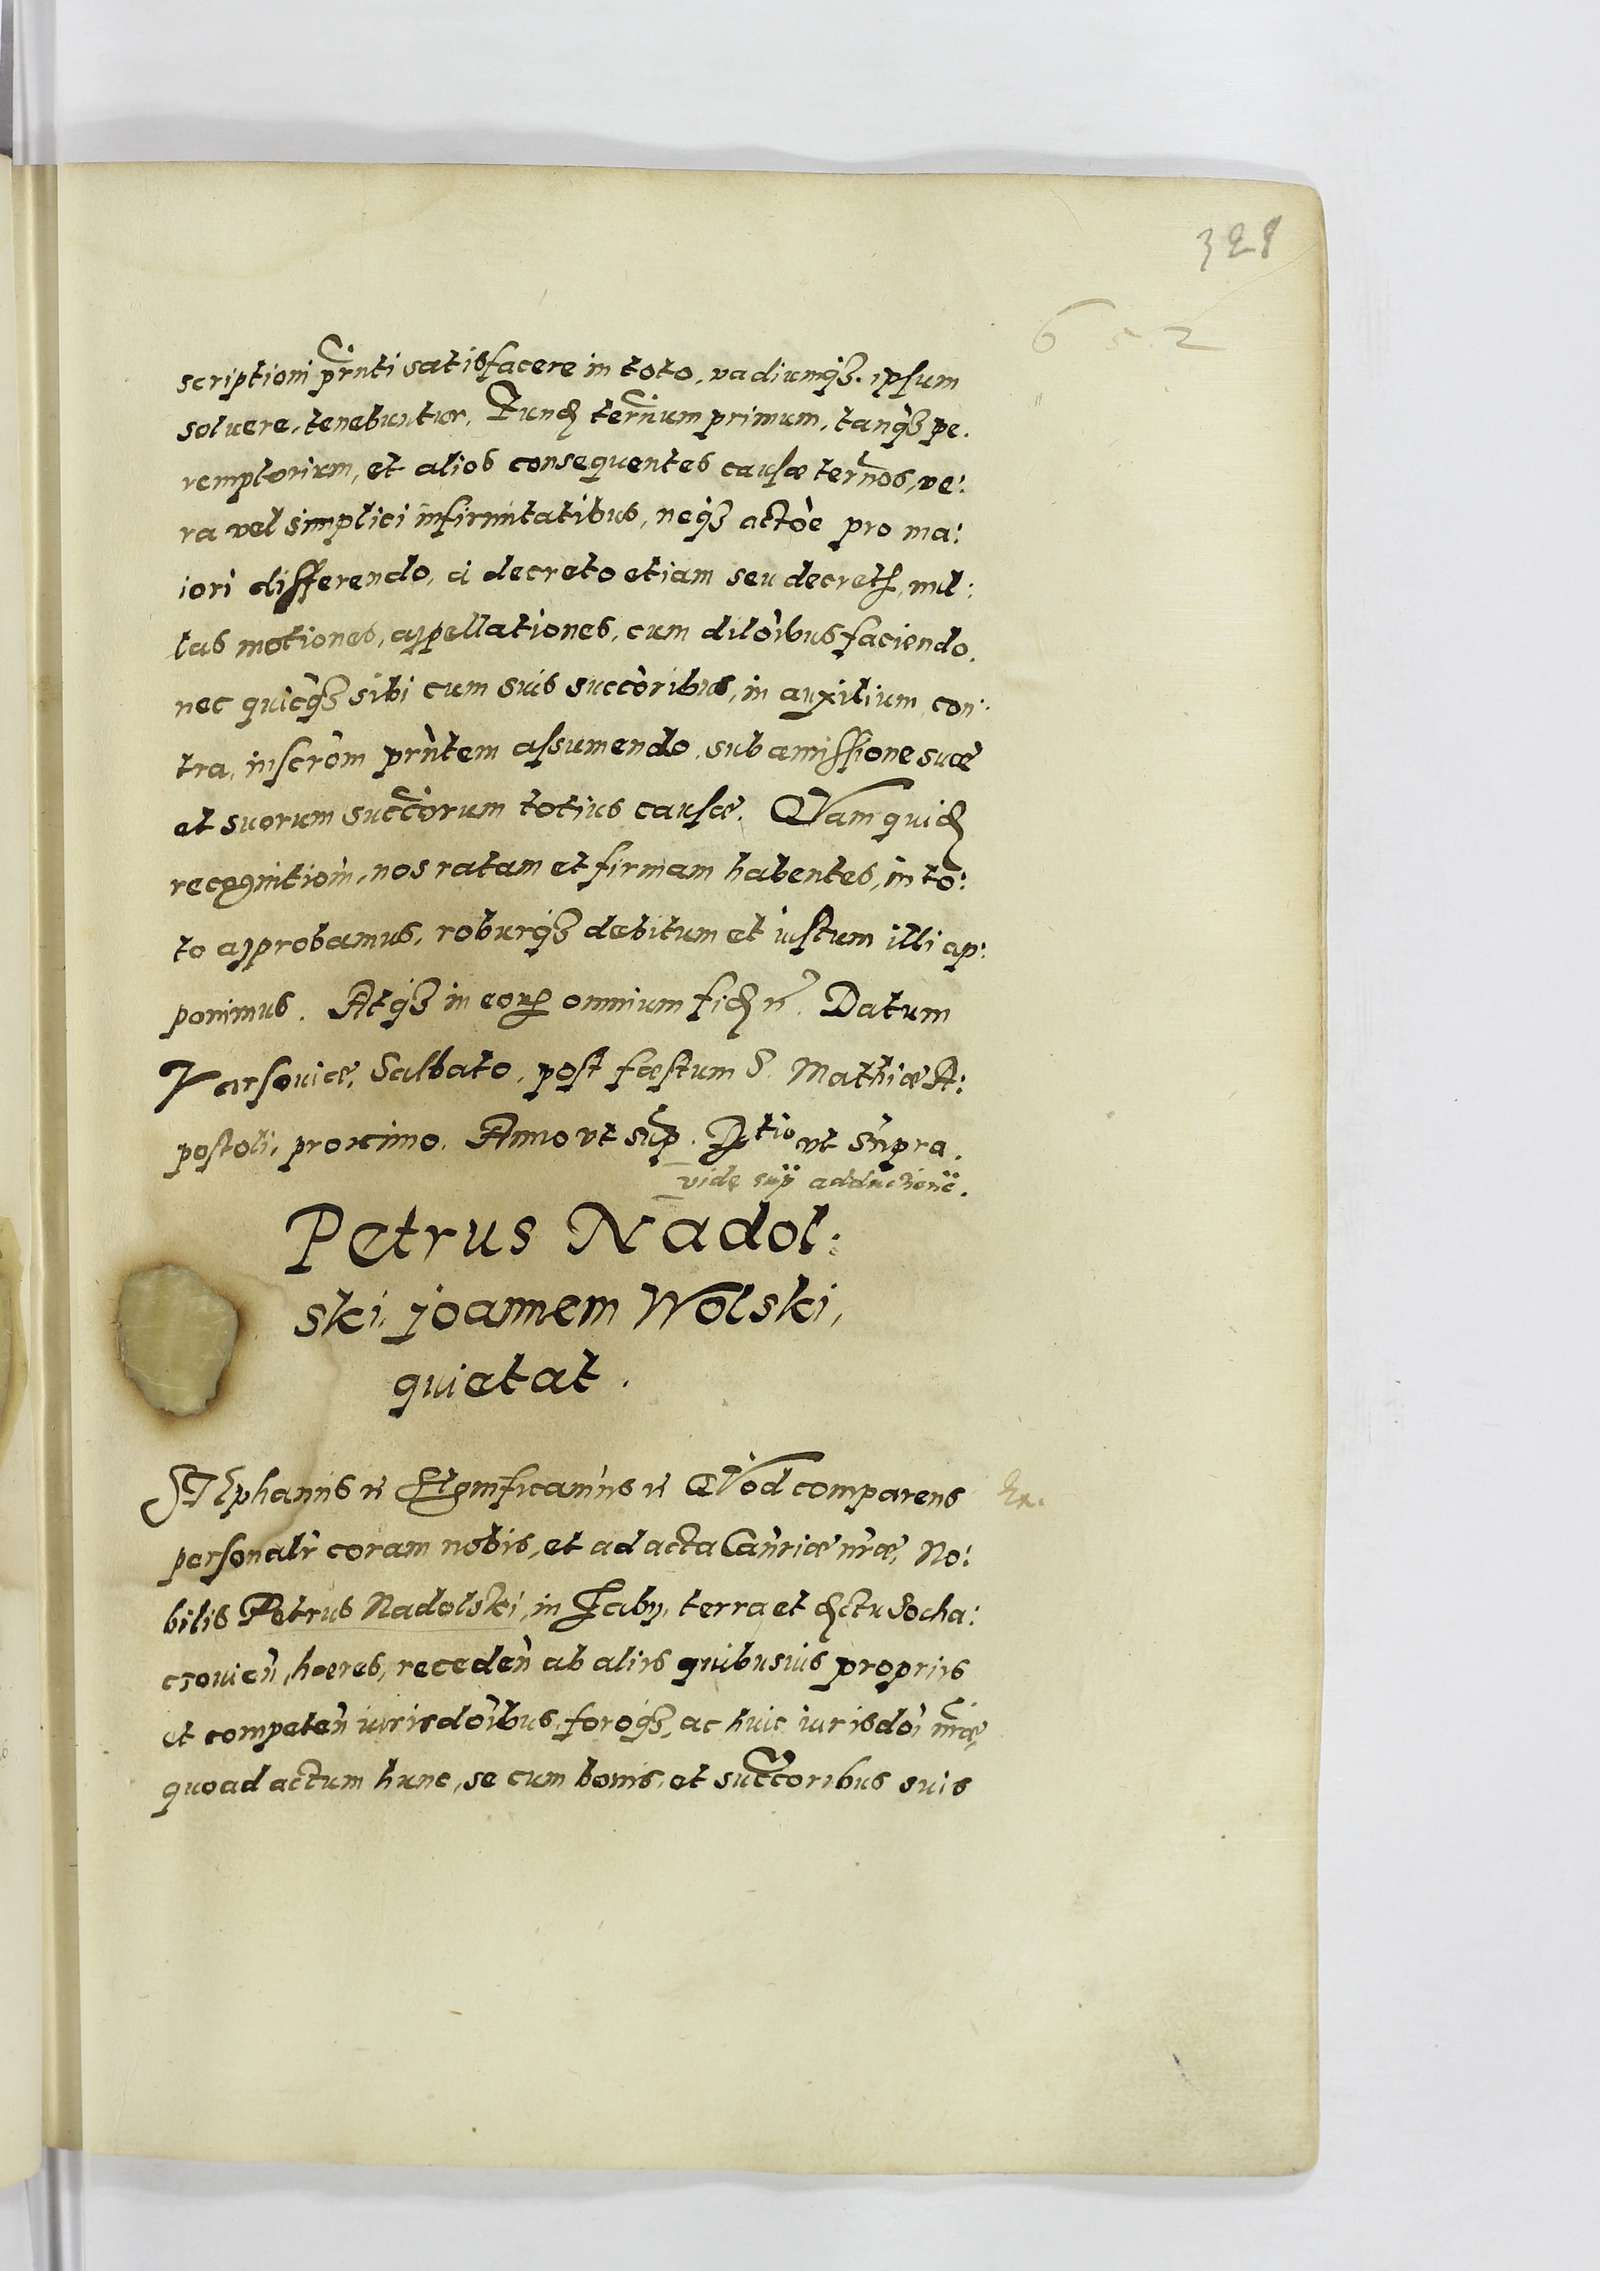 328
6 5 2
scriptioni prnti satisfacere in toto, vadiumqз. ipsum
soluere, tenebuntur. Eund terñum primum, tanqз pe.
remptorium, et alios consequentes causæ terños, ve:
ra vel simplici infirmitatibus, neqз actōe pro ma:
iori differendo, a decreto etiam seu decretis, nul:
las motiones, appellationes, cum dilōibus faciendo,
nec quicqз sibi cum suis succōribus, in auxilium, con:
tra, inscrōm prntem assumendo, sub amissione suæ
et suorum succorum totius causæ. QVam quid
recognitiom, nos ratam et firmam habentes, in to:
to approbamus, roburqз debitum et iustum illi ap:
ponimus. Atqз in eoꝝ omnium fid rz. Datum
Varsouiæ, Sabbato, post fæstum S. Mathiæ A:
postoli, proximo. Anno vt sup. Rtio vt supra.
vide sup adductione.
Petrus Nadol:
ski, joannem Wolski,
quietat.
STEphanus rz Significamus rz QVod comparens
personalr coram nobis, et ad acta Canriæ nræ, No:
bilis Petrus Nadolski, in Faby, terra et dctu Socha:
czouien, hæres, receden ab aliis quibusuis propriis
et competen iurisdōibus, foroqз, ac huic iurisdōi nræ,
quoad actum hunc, se cum bonis, et succoribus suis